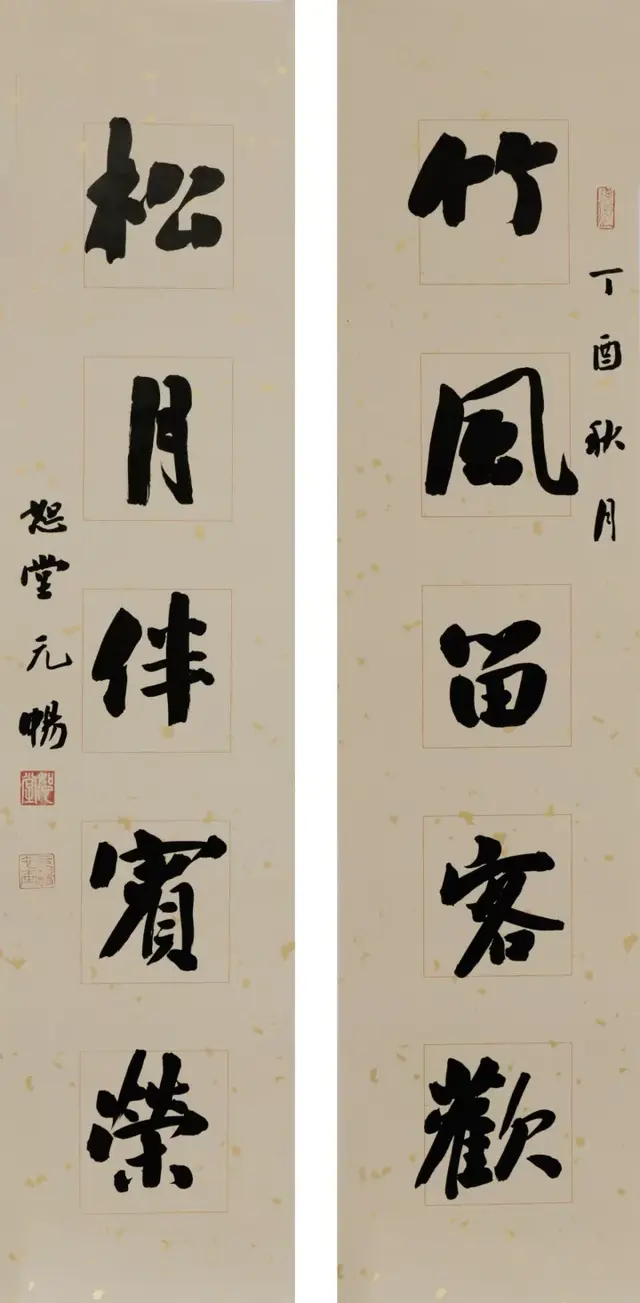 丁酉秋月
竹風留客歡
松月伴賓榮
恕堂元暢